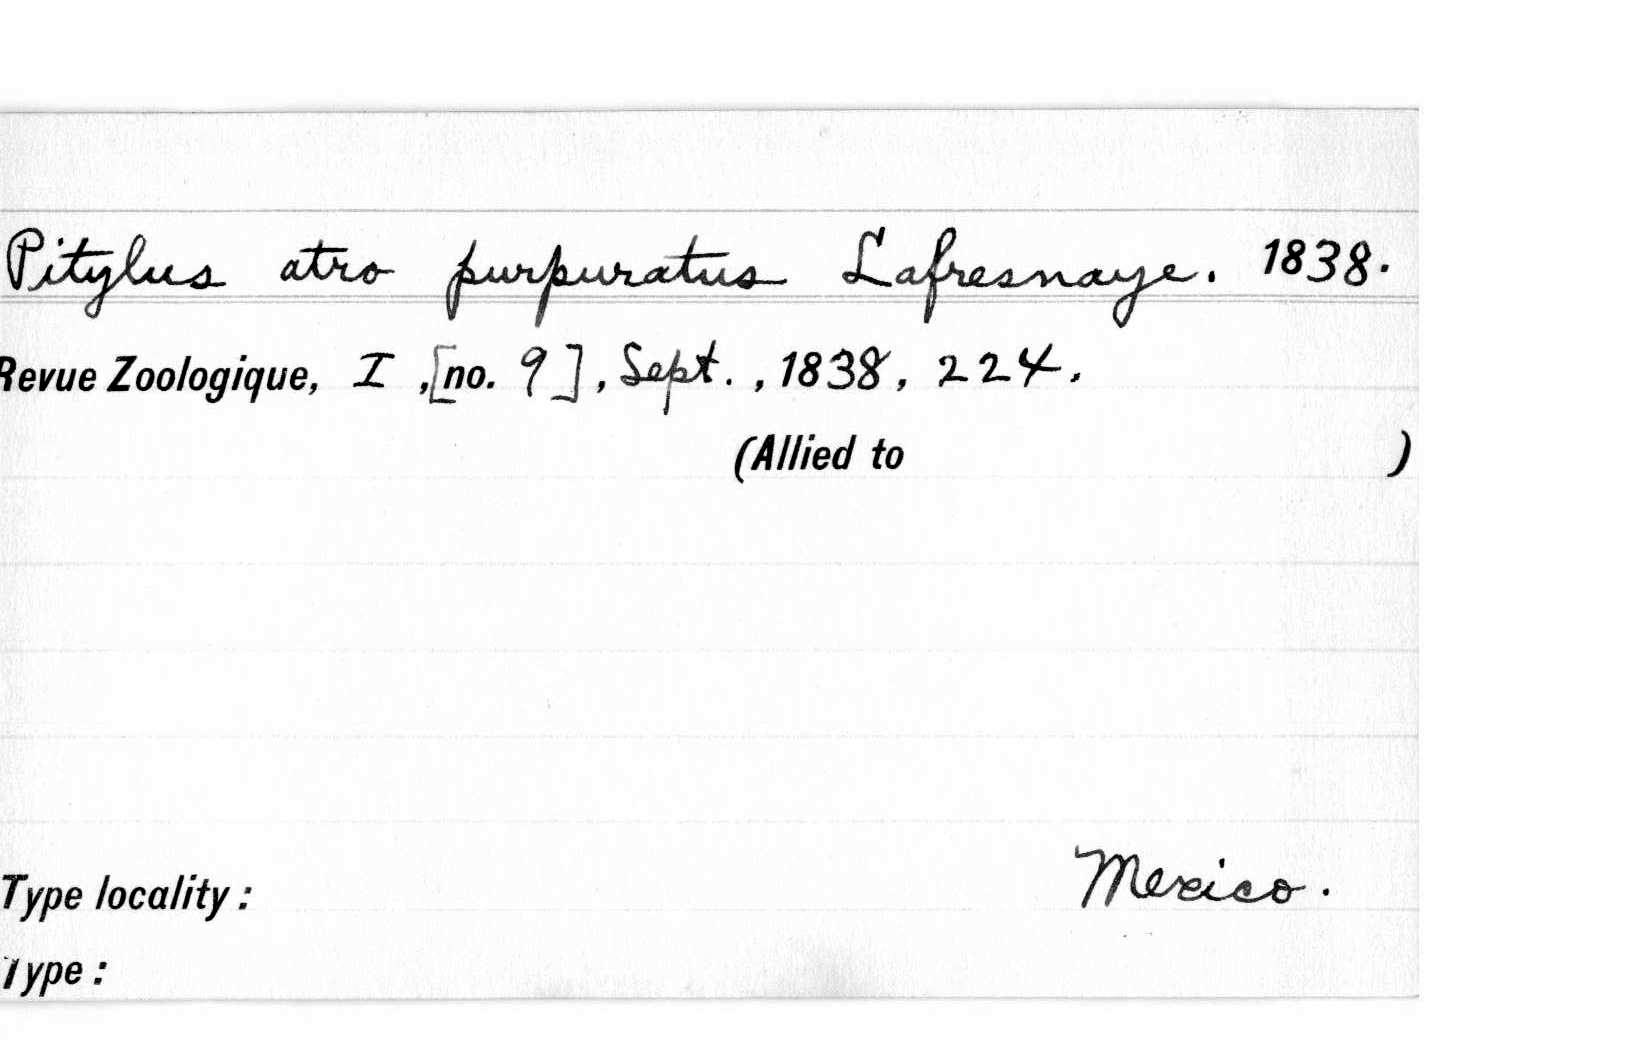 Pitylus atro purpuratus Lafresnaye. 1838.
Revue Zoologique, I , [no. 9], Sept. , 1838, 224.
(Allied to )
Type locality : Mexico.
Type :